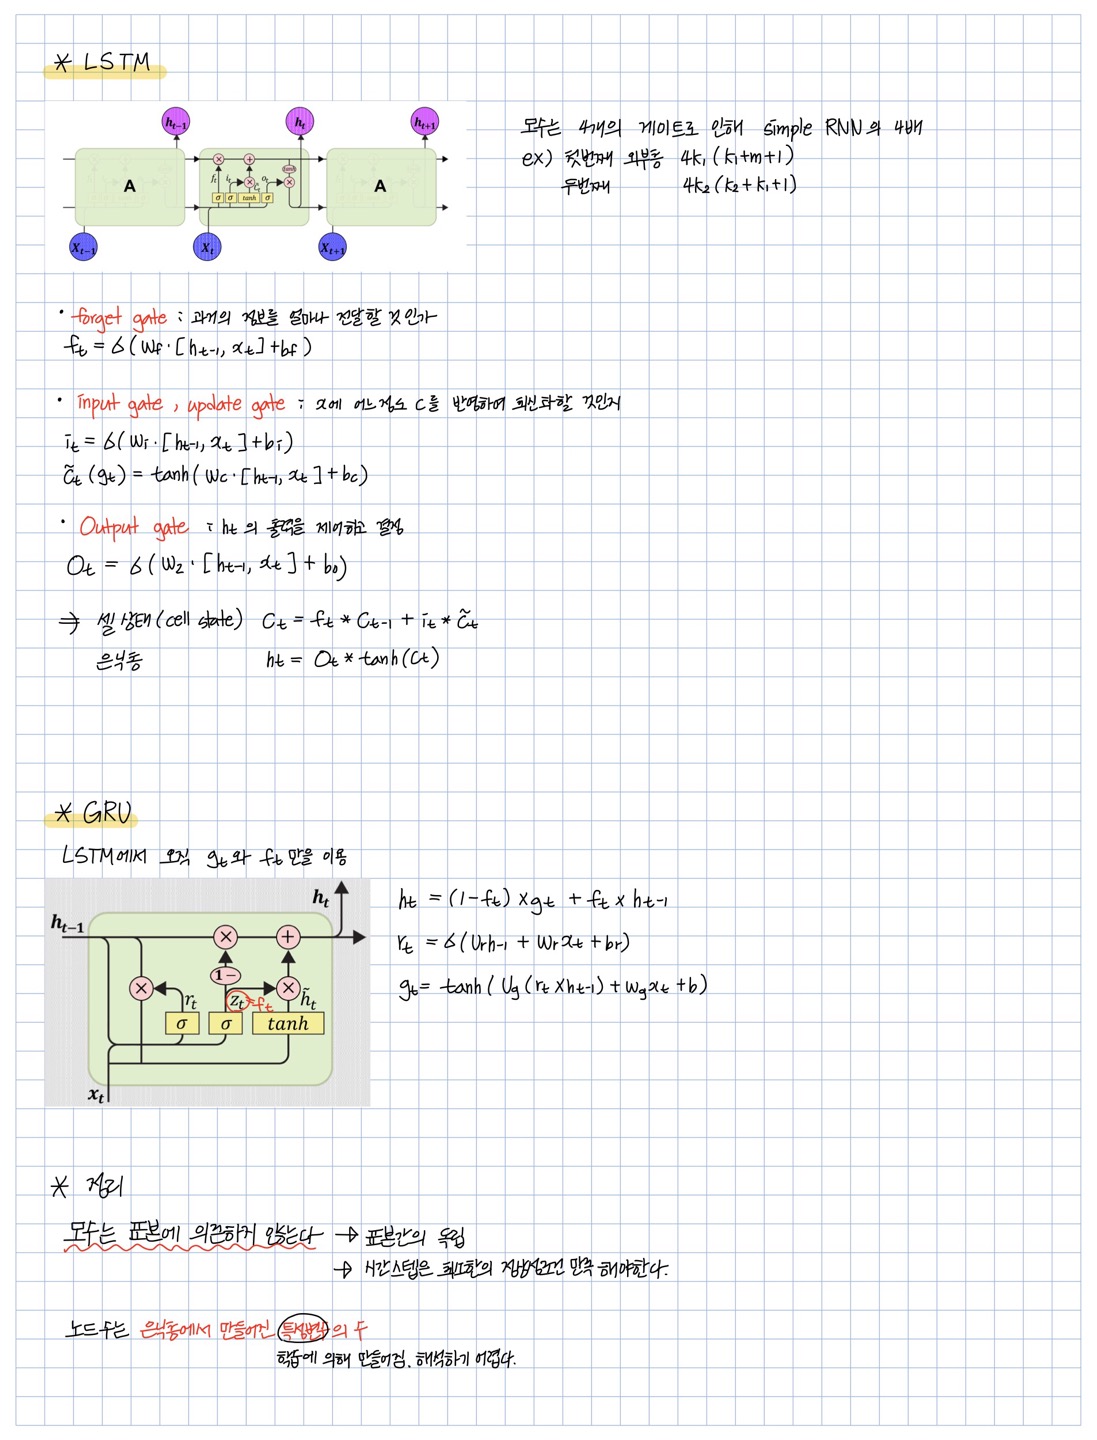 * LSTM
h_{t-1} h_t h_{t+1}
A A
f_t i_t o_t tanh
σ σ tanh σ
X_{t-1} X_t X_{t+1}
모수는 4개의 게이트로 인해 simple RNN의 4배
ex) 첫번째 외부층 4k₁(k₁+m+1)
두번째 4k₂(k₂+k₁+1)
· forget gate : 과거의 정보를 얼마나 전달할 것인가
f_t = σ(W_f·[h_{t-1}, x_t]+b_f)
· input gate, update gate : x에 어느정도 C를 반영하여 최신화할 것인지
i_t = σ(W_i·[h_{t-1}, x_t]+b_i)
c̃_t(g_t) = tanh(W_c·[h_{t-1}, x_t]+b_c)
· Output gate : h_t의 출력을 제어하고 결정
O_t = σ(W_2·[h_{t-1}, x_t]+b_o)
⇒ 셀 상태(cell state) C_t = f_t * C_{t-1} + i_t * C̃_t
은닉층 h_t = O_t * tanh(C_t)
* GRU
LSTM에서 오직 g_t와 f_t만을 이용
h_t
h_{t-1}
1-
r_t z_t = f_t h̃_t
σ σ tanh
x_t
h_t = (1-f_t)×g_t + f_t×h_{t-1}
r_t = σ(U_r h_{-1} + W_r x_t + b_r)
g_t = tanh(U_g(r_t×h_{t-1})+W_g x_t+b)
* 정리
모수는 표본에 의존하지 않는다 → 표본간의 독립
→ 시간스텝은 최소한의 정상성조건 만족해야한다.
노드수는 은닉층에서 만들어진 특성변수의 수
학습에 의해 만들어짐. 해석하기 어렵다.